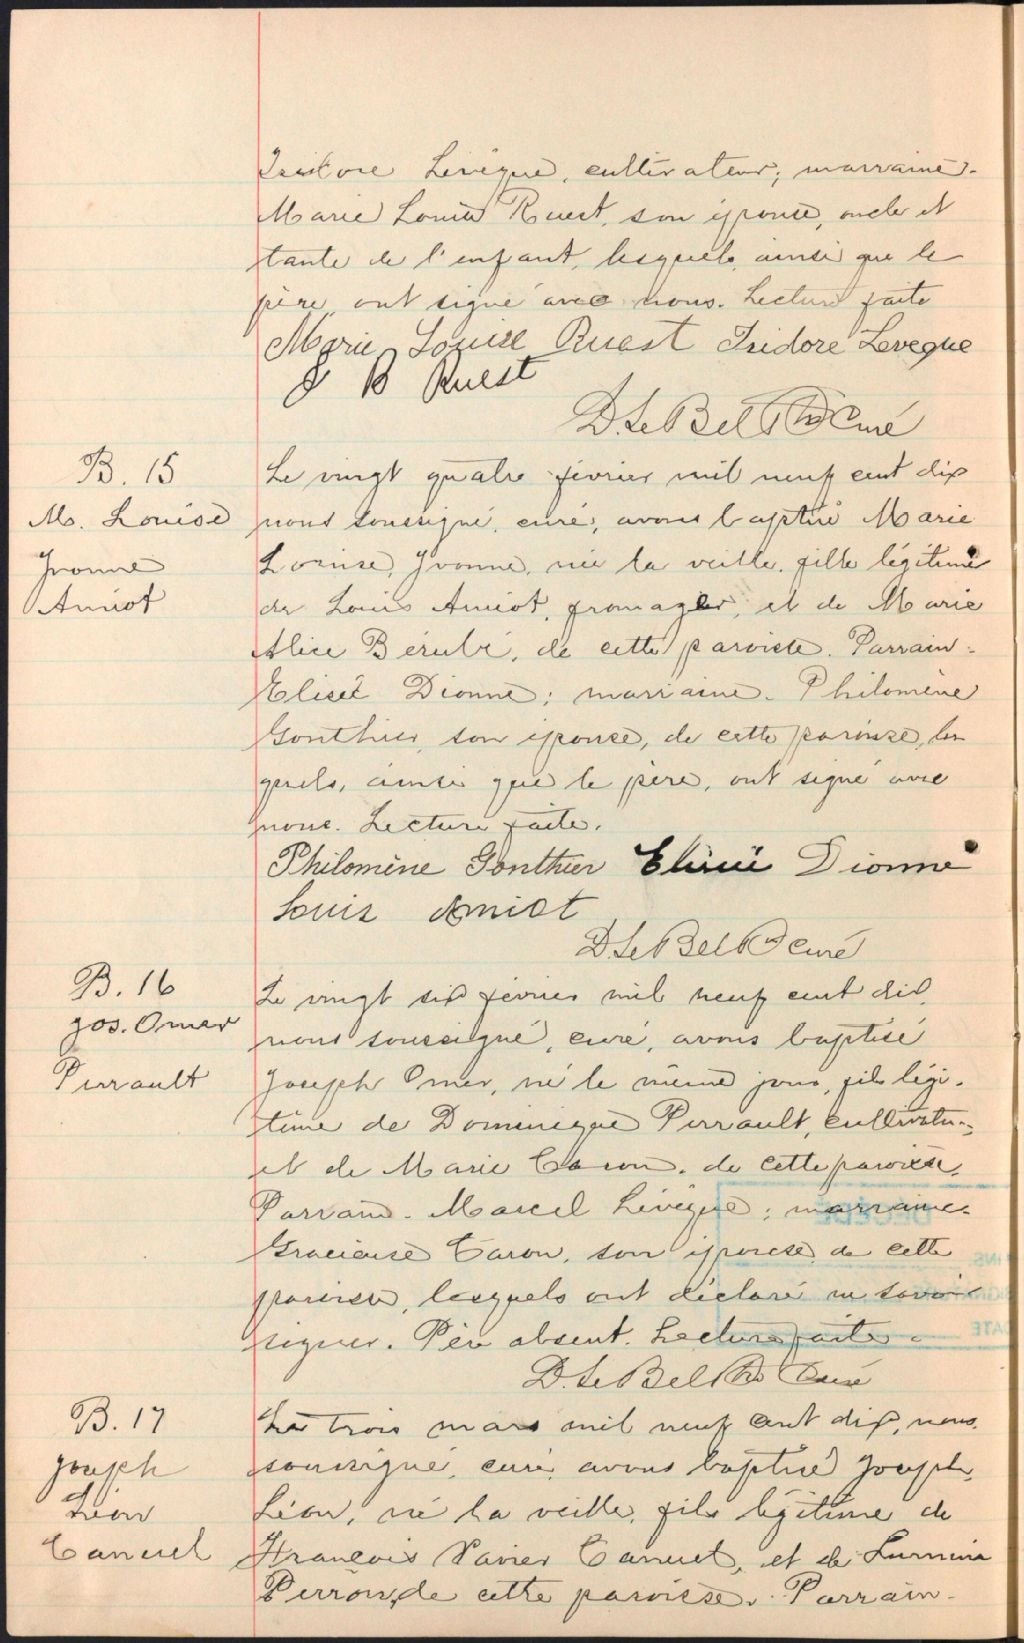 Isidore Lévêque, cultivateur; marraine-
Marie Louise Ruest, son épouse, oncle et
tante de l'enfant, lesquels, ainsi que le
père, ont signé avec nous. Lecture faite
Marie Louise Ruest Isidore Leveque
J B Ruest
D. Le Bel Ptre Curé
B. 15
M. Louise
Yvonne
Amiot
Le vingt quatre février mil neuf cent dix
nous soussigné, curé, avons baptisé Marie
Louise, Yvonne, née la veille, fille légitime
de Louis Amiot, fromager, et de Marie
Alice Bérubé, de cette paroisse. Parrain-
Elisée Dionne; marraine- Philomène
Gonthier, son épouse, de cette paroisse, les
quels, ainsi que le père, ont signé avec
nous. Lecture faite.
Philomène Gonthier Elisée Dionne
Louis Amiot
D. Le Bel Ptre curé
B. 16
Jos. Omer
Perrault
Le vingt six février mil neuf cent dix,
nous soussigné, curé, avons baptisé
Joseph Omer, né le même jour, fils légi-
time de Dominique Perrault, cultivateur
et de Marie Caron, de cette paroisse.
Parrain- Marcel Lévêque; marraine-
Gracieuse Caron, son épouse, de cette
paroisse, lesquels ont déclaré ne savoir
signer. Père absent. Lecture faite.
D. Le Bel Ptre Curé
B. 17
Joseph
Léon
Canuel
Le trois mars mil neuf cent dix, nous
soussigné, curé, avons baptisé Joseph
Léon, né la veille, fils légitime de
François Xavier Canuel, et de Lumina
Perron, de cette paroisse. Parrain-